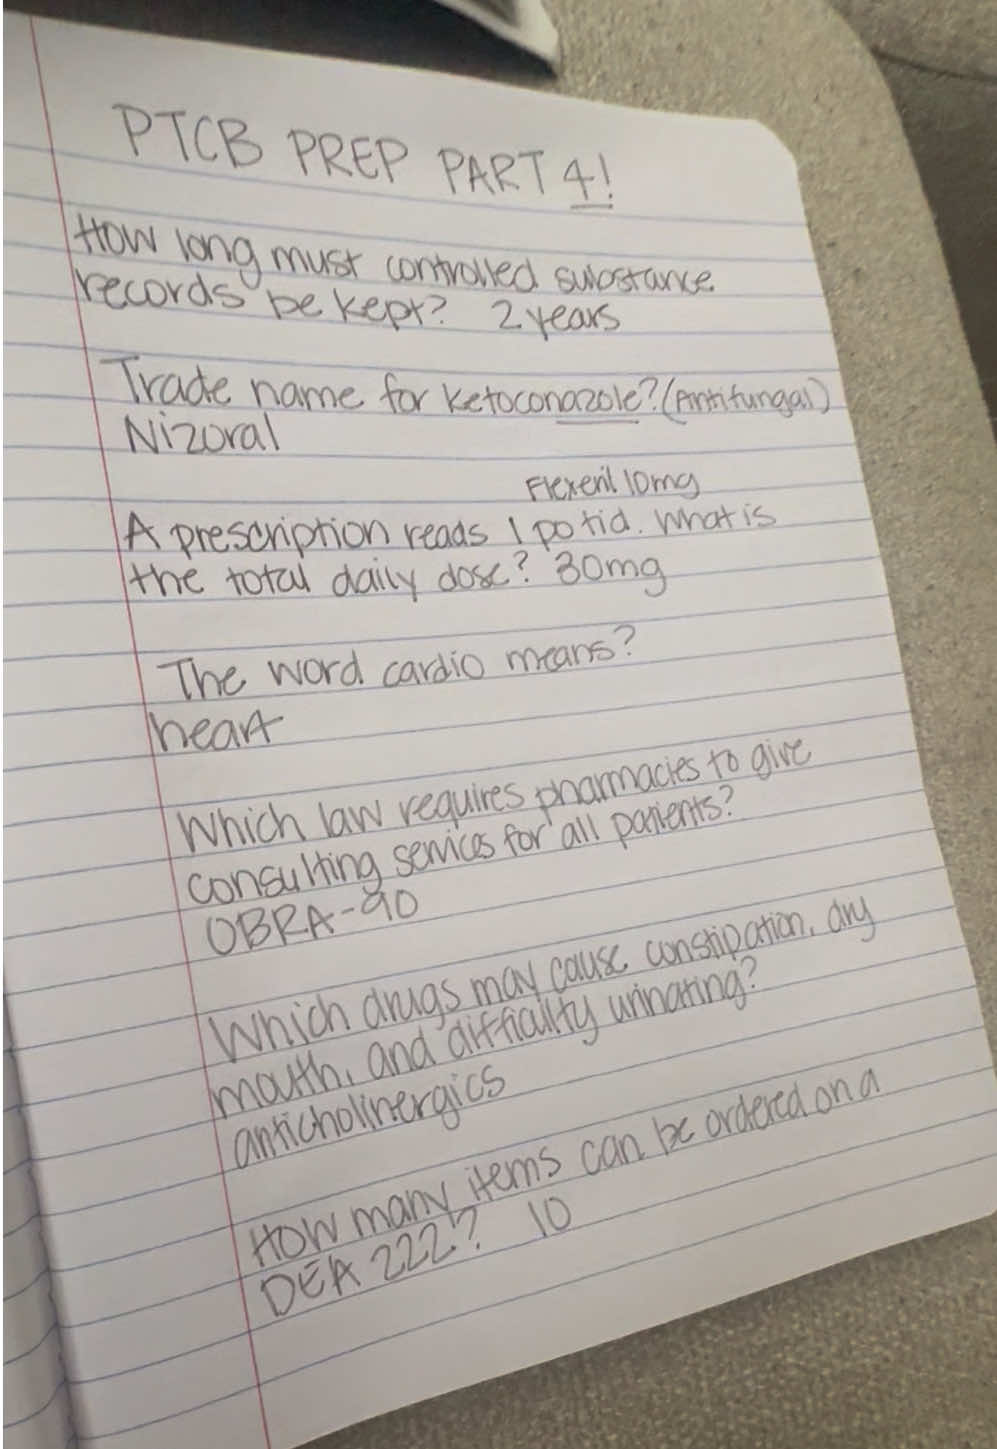 PTCB PREP PART 4!
How long must controlled substance
records be kept? 2 years
Trade name for ketoconazole? (Antifungal)
Nizoral
Flexeril 10mg
A prescription reads 1 po tid. What is
the total daily dose? 30mg
The word cardio means?
heart
Which law requires pharmacies to give
consulting services for all patients?
OBRA-90
Which drugs may cause constipation, dry
mouth, and difficulty urinating?
anticholinergics
How many items can be ordered on a
DEA 222? 10